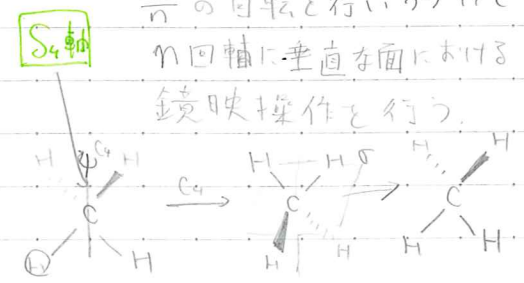 nの回転を行いつづけて
S₄軸
n回軸に垂直な面における
鏡映操作を行う.
H C₄ H
C
H H
C₄
H H σ
C
H H
H H
C
H H